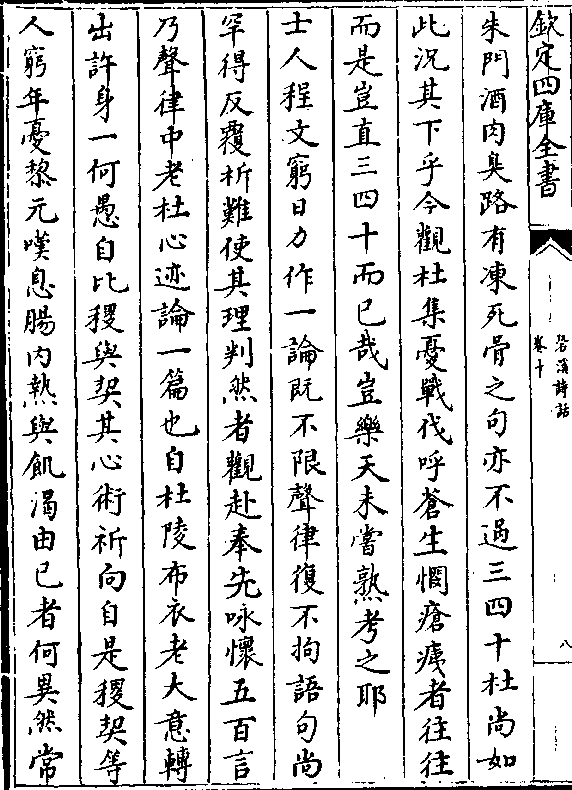 欽定四庫全書
䂬溪詩話
卷十
八
朱門酒肉臭路有凍死骨之句亦不過三四十杜尚如
此況其下乎今觀杜集憂戰伐呼蒼生憫瘡痍者往往
而是豈直三四十而已哉豈樂天未嘗熟考之耶
士人程文窮日力作一論既不限聲律復不拘語句尚
罕得反覆析難使其理判然者觀赴奉先咏懷五百言
乃聲律中老杜心迹論一篇也自杜陵布衣老大意轉
出許身一何愚自比稷與契其心術祈向自是稷契等
人窮年憂黎元嘆息腸内熱與飢渴由已者何異然常